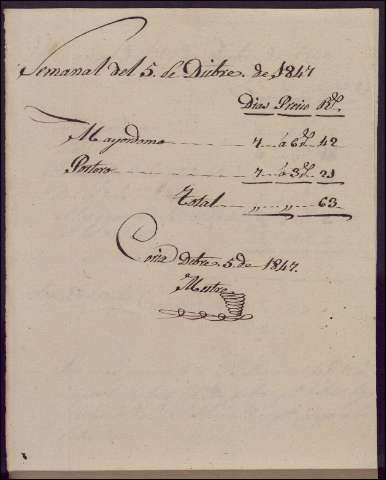 Semanal del 5. de Dicbre. de 1847
Dias Precio Rs.
Mayordomo 7 á 6 rs. 42
Portero 7 á 3 rs. 21
Total " " 63
Coria Dicbre. 5 de 1847.
Mestre